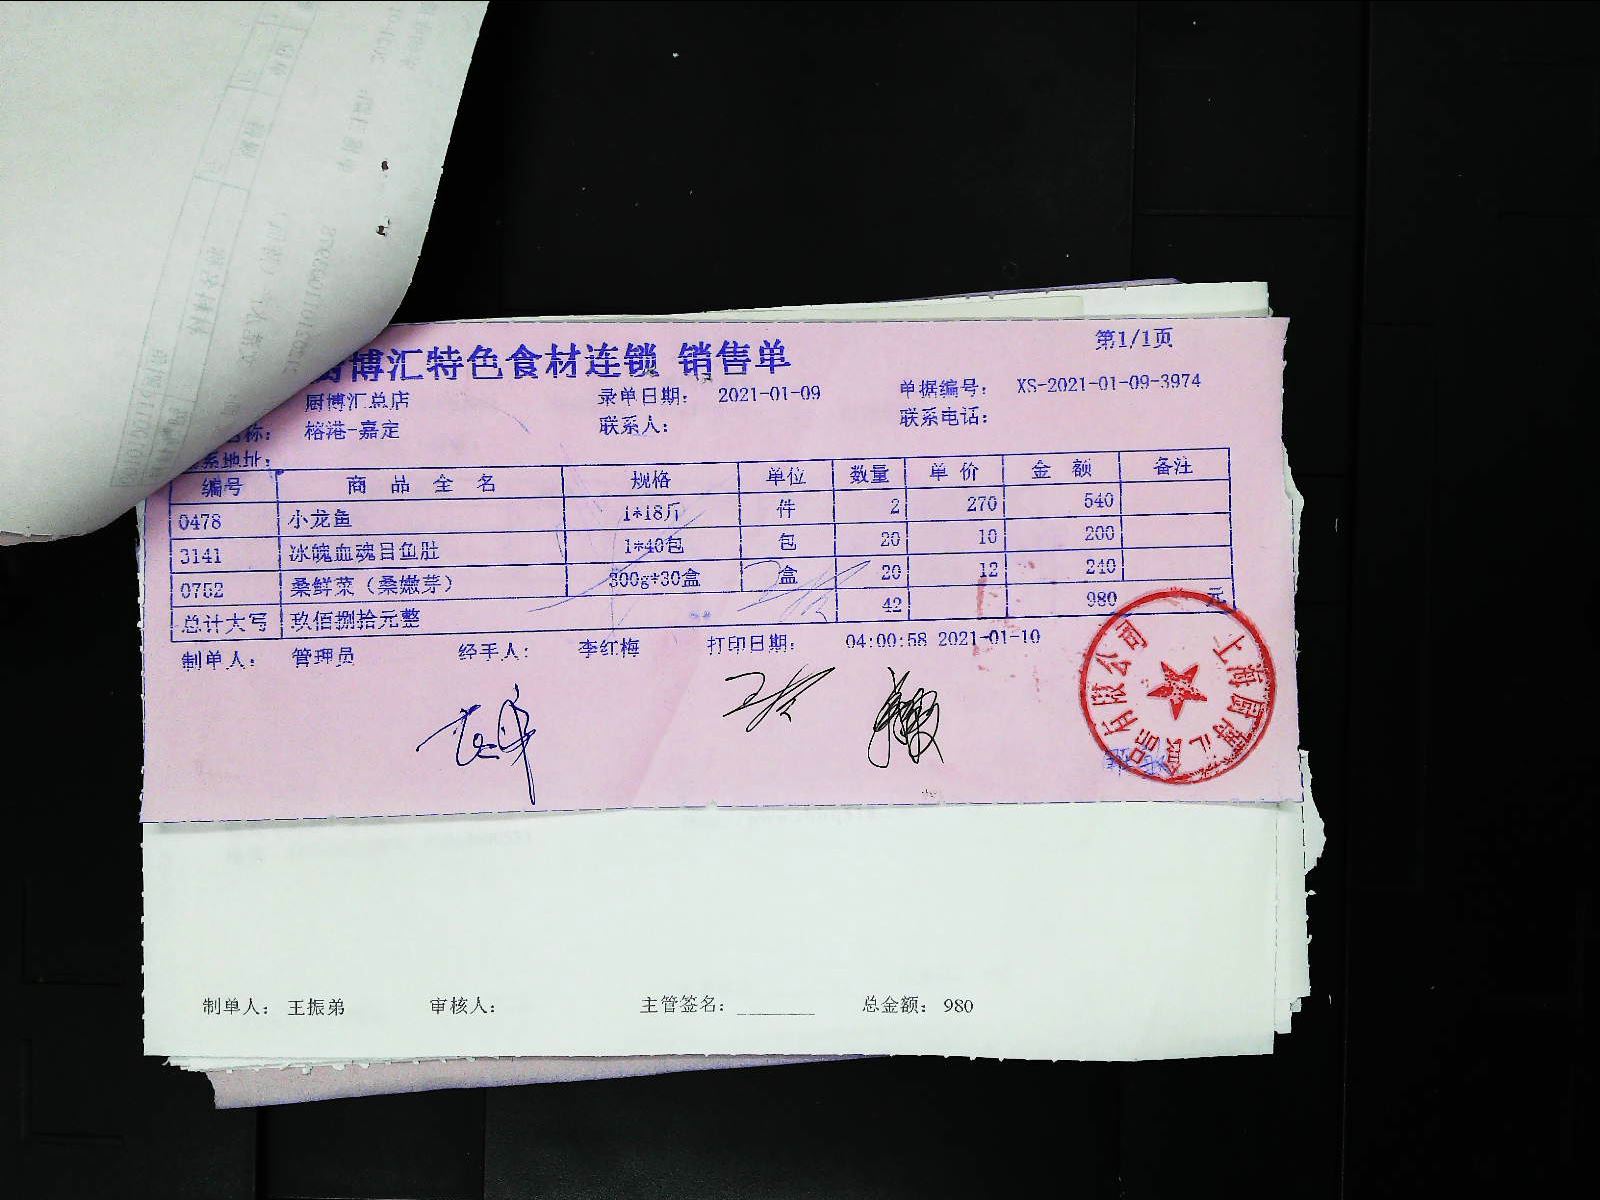 博汇特色食材连锁 销售单
第1/1页
厨博汇总店 录单日期: 2021-01-09 单据编号: XS-2021-01-09-3974
名称: 榕港-嘉定 联系人: 联系电话:
系地址:
编号 商品全名 规格 单位 数量 单价 金额 备注
0478 小龙鱼 1*18斤 件 2 270 540
3141 冰魄血魂目鱼肚 1*40包 包 20 10 200
0752 桑鲜菜（桑嫩芽） 300g*30盒 盒 20 12 240
总计大写 玖佰捌拾元整 42 980 元
制单人: 管理员 经手人: 李红梅 打印日期: 04:00:58 2021-01-10
上海厨博汇食品有限公司
制单人: 王振弟 审核人: 主管签名: ________ 总金额: 980